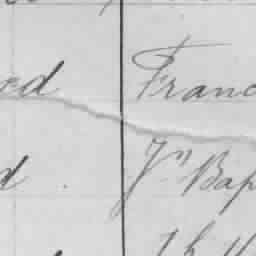 ed Franc
d. Jn Bap